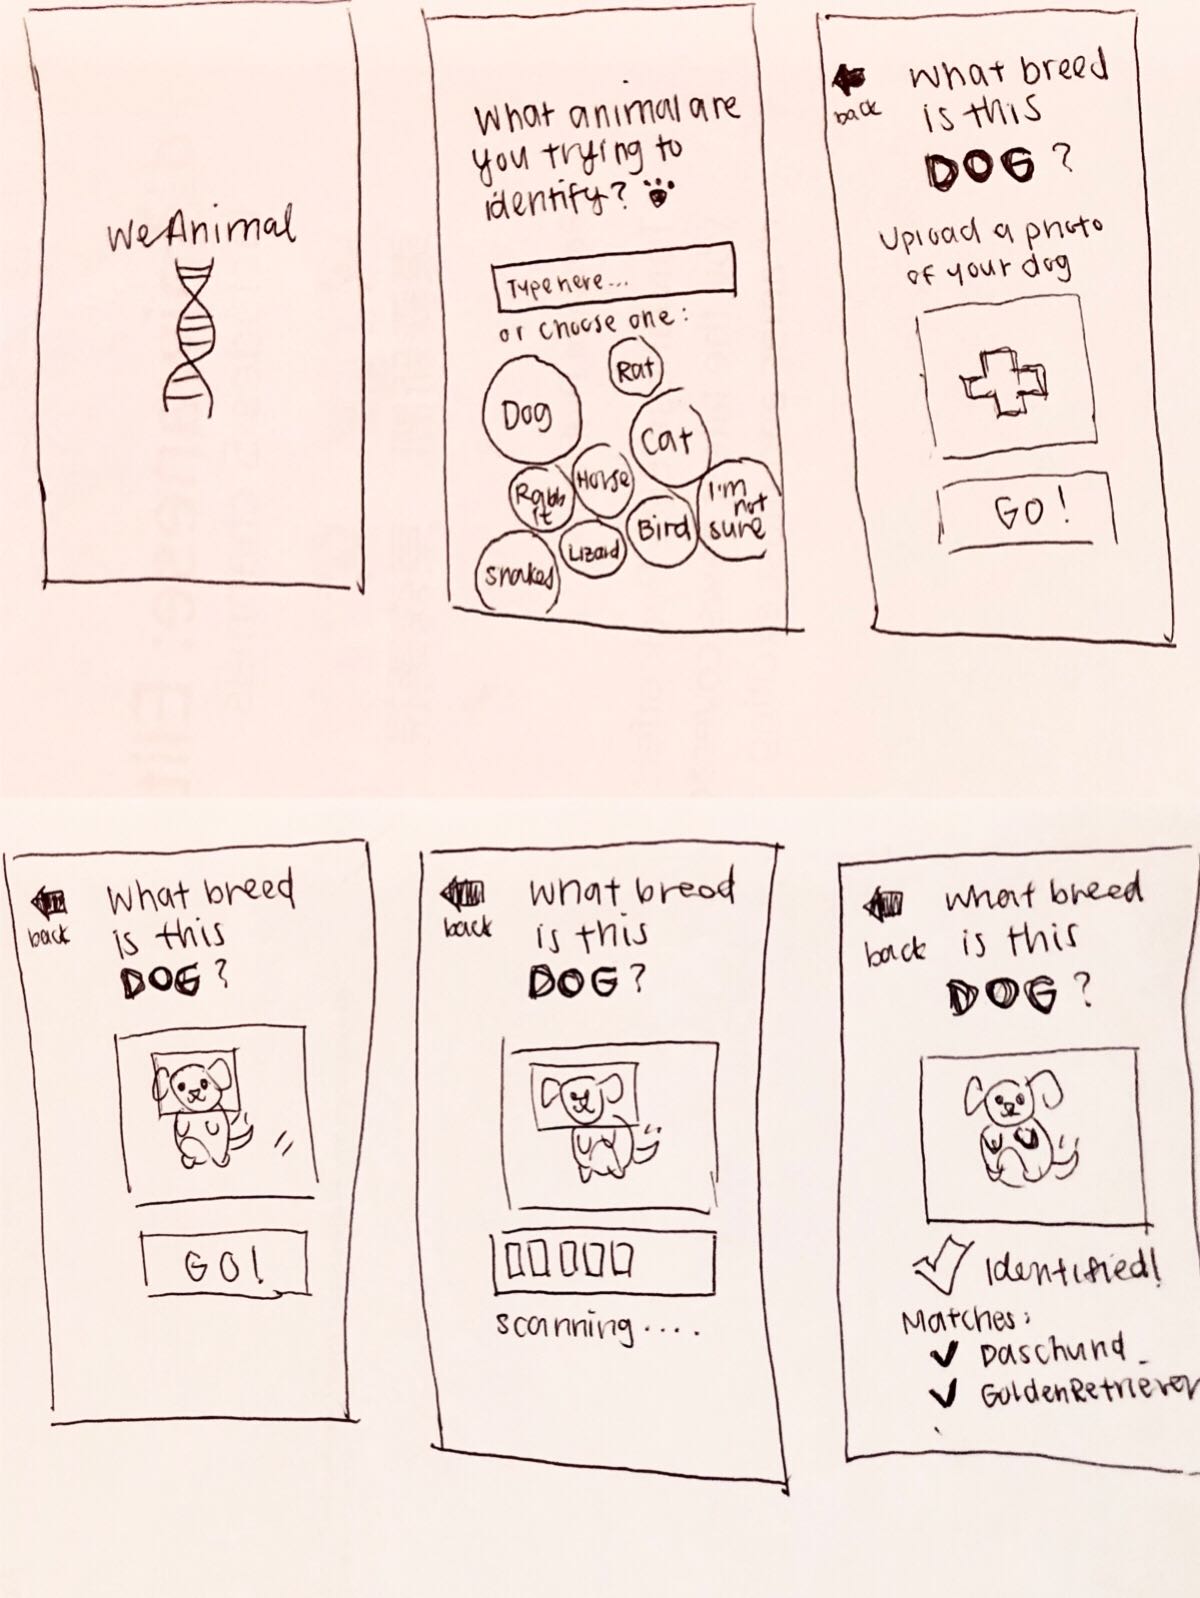 WeAnimal
What animal are
you trying to
identify?
Type here...
or choose one:
Rat
Dog
Cat
Horse
Rabb
it
I'm
not
sure
Bird
Lizard
Snakes
back
What breed
is this
DOG?
Upload a photo
of your dog
GO!
back
What breed
is this
DOG?
GO!
back
What breed
is this
DOG?
scanning....
back
What breed
is this
DOG?
Identified!
Matches:
Daschund
Golden Retriever